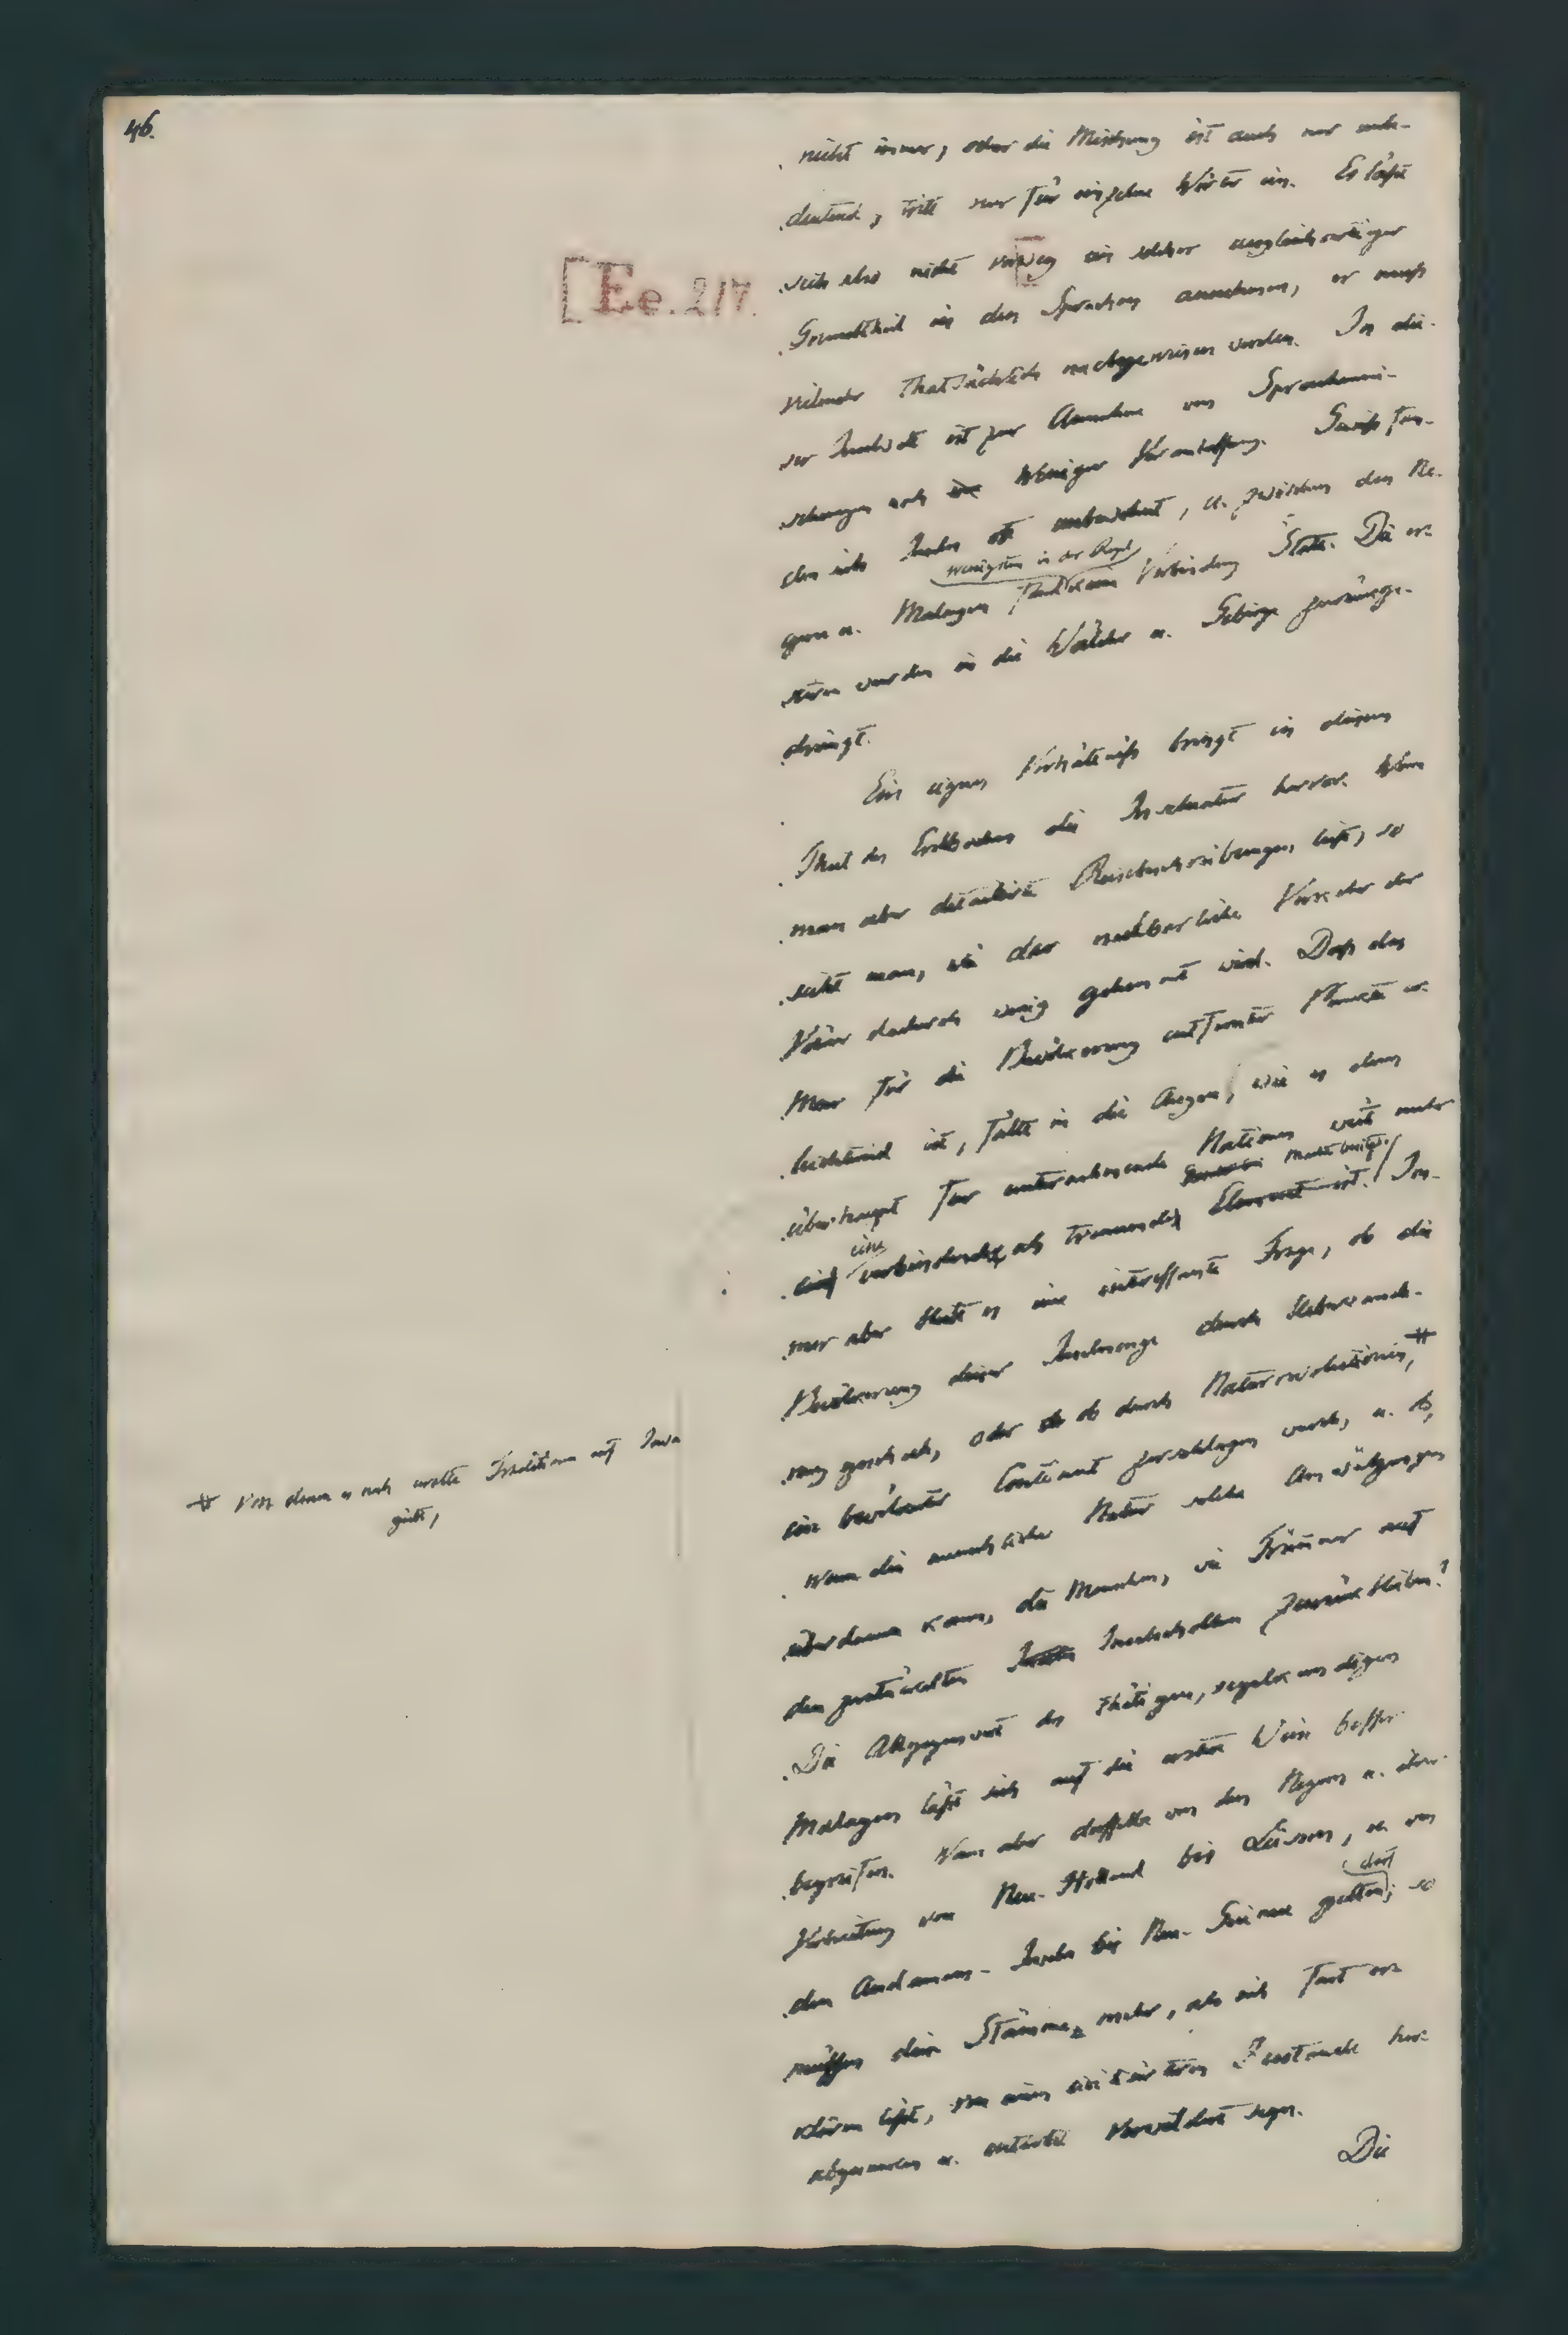 46.
nicht immer, oder die Mischung ist auch nur unbe-
deutend, tritt nur für einzelne Wörter ein. Es läßt
sich also nicht vorweg ein solcher ungleichartiger
[Ee. 217.
Grundtheil in den Sprachen annehmen, er muß
vielmehr thatsächlich nachgewiesen werden. In die-
ser Inselwelt ist zur Annahme von Sprachenmi-
schungen noch weniger Veranlassung. Gewiß fan-
den sich Inseln oft unbewohnt, u. zwischen den Ne-
wenigstens in der Regel
gern u. Malayen fand keine Verbindung Statt. Die er-
stern wurden in die Wälder u. Gebirge zurückge-
drängt.
Ein eignes Verhältniß bringt in diesem
Theil des Erdbodens die Inselnatur hervor. Wenn
man aber detaillirte Reisebeschreibungen liest, so
sieht man, wie der nachbarliche Verkehr der
Völker dadurch wenig gehemmt wird. Daß das
Meer für die Bevölkerung entfernter Puncte er-
leichternd ist, fällt in die Augen, wie es denn
überhaupt für unternehmende Nationen weit mehr
ein verbindendes als trennendes Element ist. Im-
mer aber bleibt es eine interessante Frage, ob die
Bevölkerung dieser Inselmenge durch Ueberwande-
rung geschah, oder ob durch Naturrevolutionen, #
# von denen es noch uralte Traditionen auf Java
gibt,
ein bewohnter Continent zerschlagen wurde, u. ob,
wenn die menschliche Natur solche Umwälzungen
überdauern kann, die Menschen, wie Trümmer auf
den zerstückelten Inselschollen zurückblieben?
Die Allgegenwart des thätigen, regsamen
Malayen läßt sich auf die erstere Weise besser
begreifen. Wenn aber dasselbe von den Negern u. ihrer
Verbreitung von Neu-Holland bis Luzon, u. von
dort
den Andaman-Inseln bis Neu-Guinea gelten, so
müssen diese Stämme, mehr, als sich fast er-
klären läßt, von einem civilisirteren Zustande her-
abgesunken u. verwildert seyn.
Die